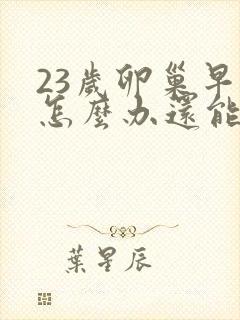 23歲卵巢早
怎麼办還能
葉星辰